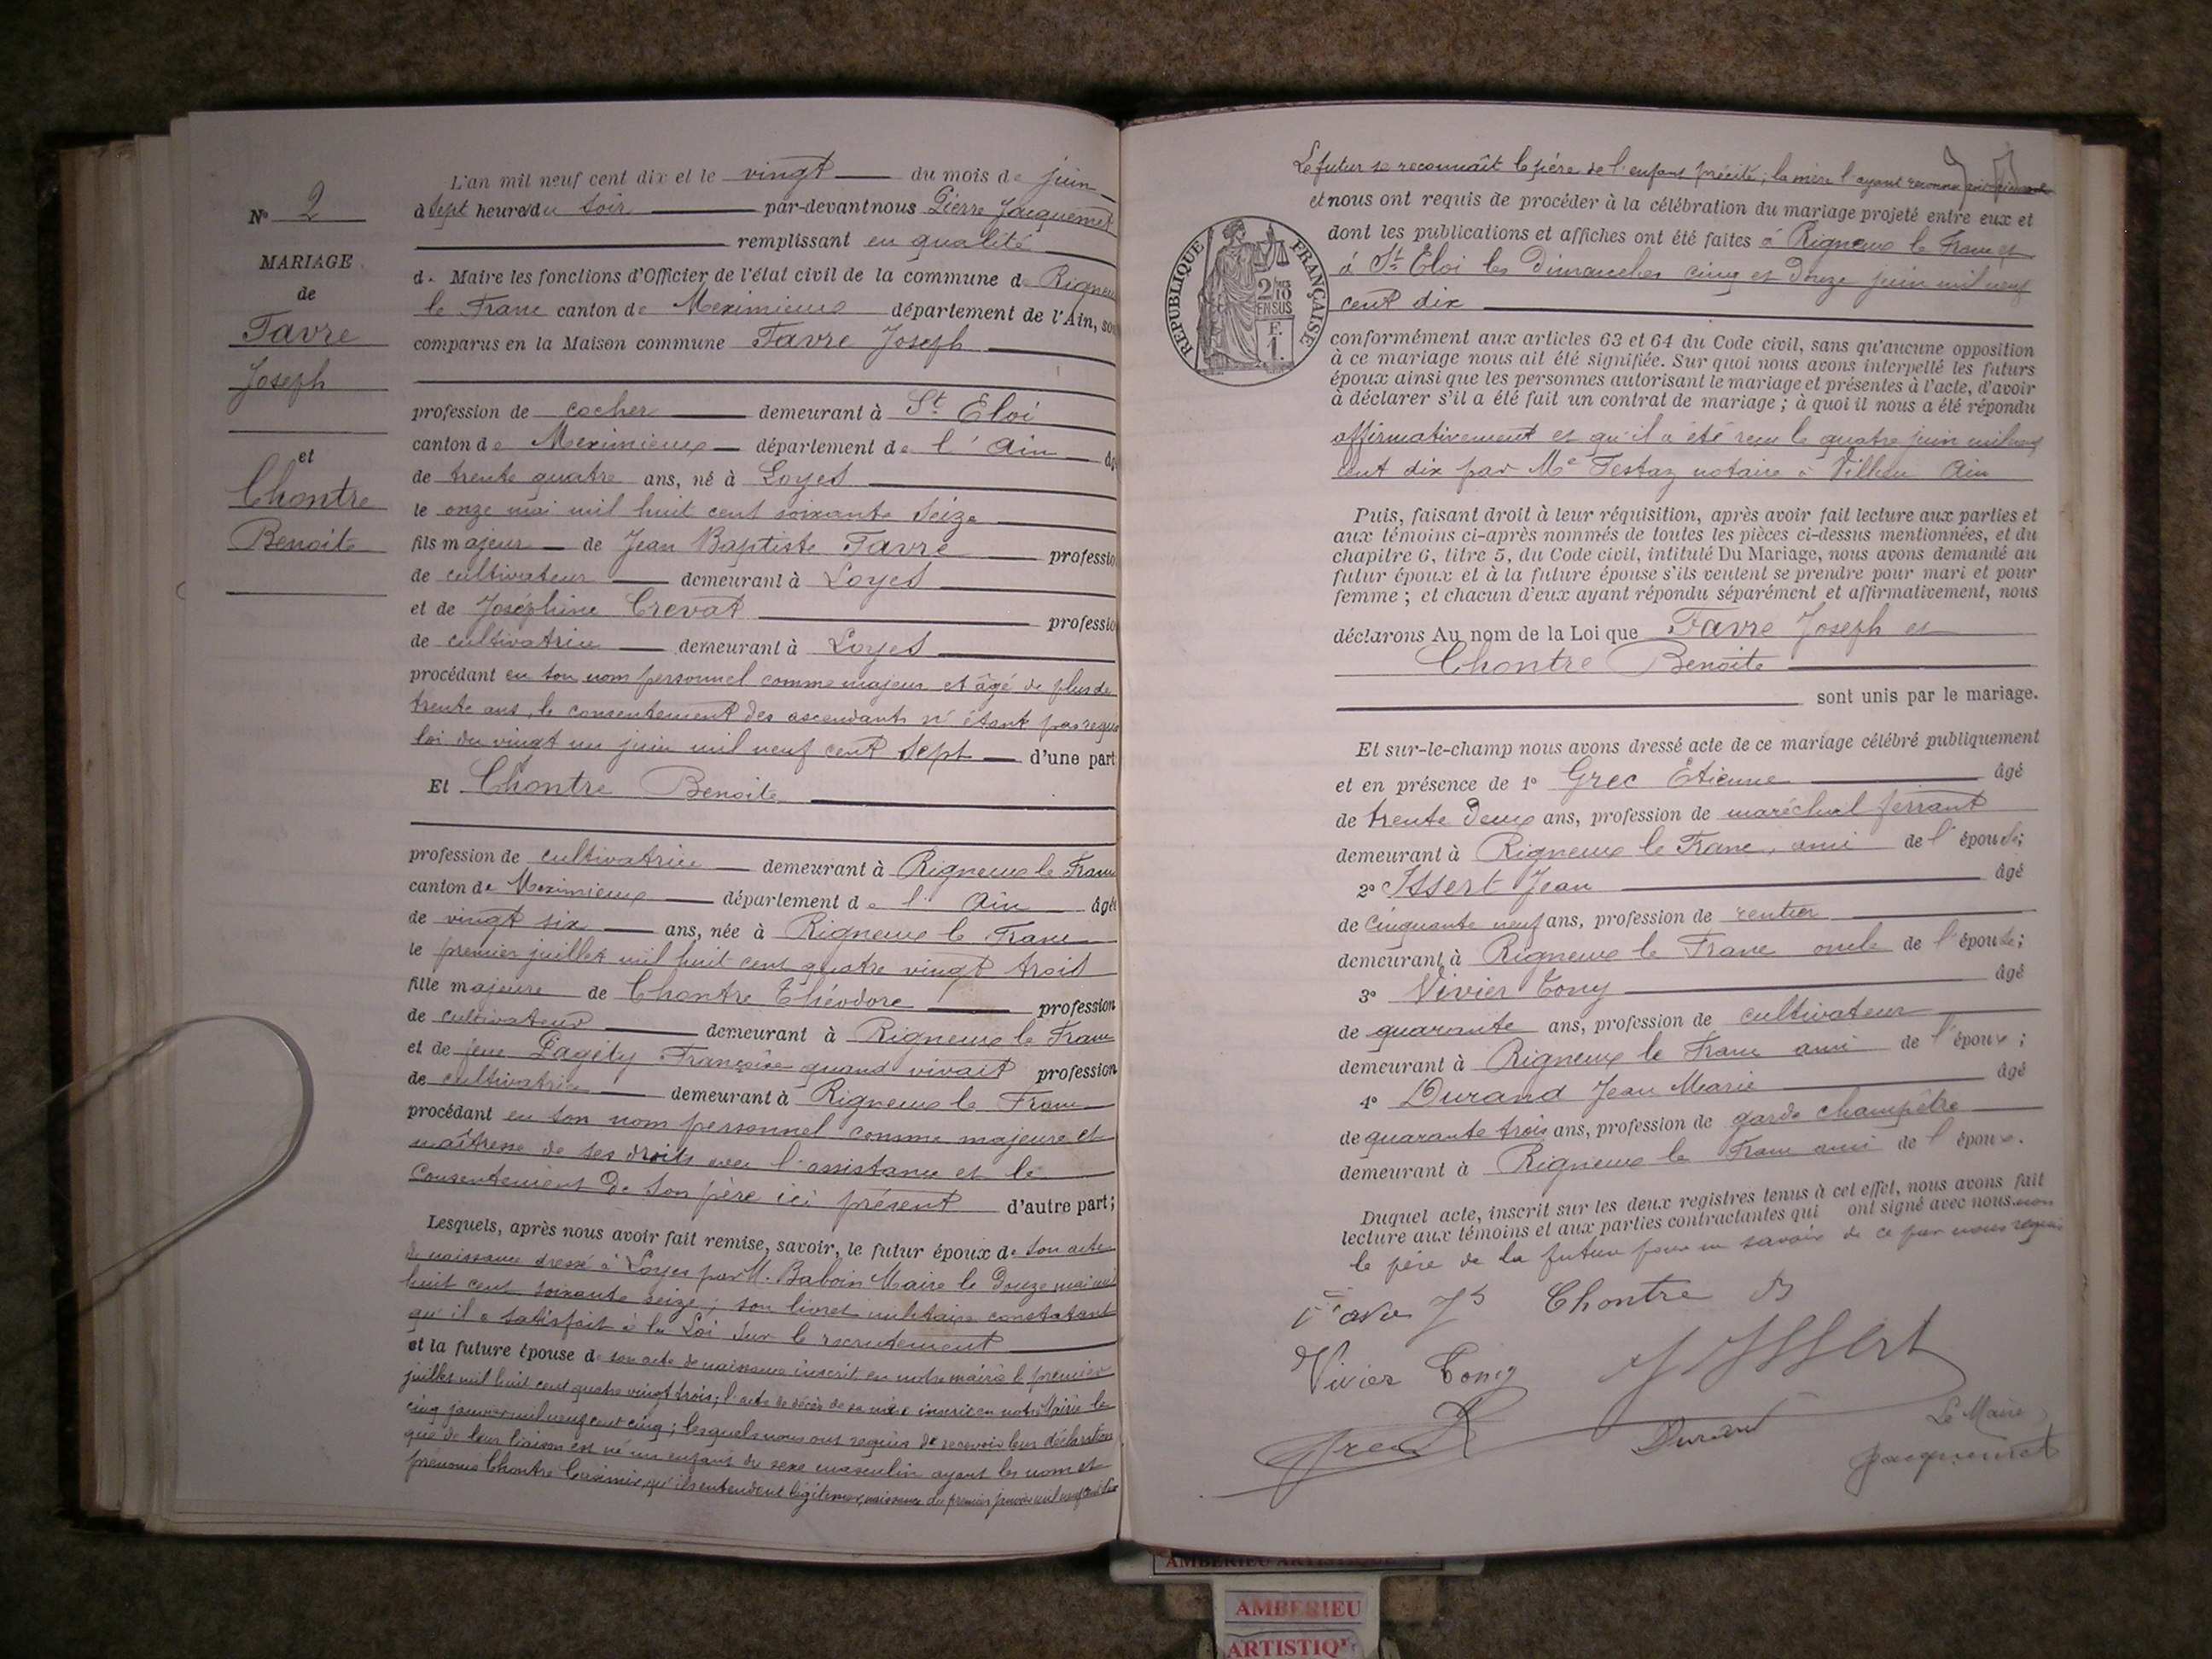 N° 2
MARIAGE
de
Favre
Joseph
et
Chontre
Benoite
L'an mil neuf cent dix et le vingt du mois de juin
à sept heures du soir par-devant nous Pierre Jacquemet
remplissant en qualité
de Maire les fonctions d'Officier de l'état civil de la commune de Rigneux
le Franc canton de Meximieux département de l'Ain, sont
comparus en la Maison commune Favre Joseph
profession de cocher demeurant à St Eloi
canton de Meximieux département de l'Ain âgé
de trente quatre ans, né à Loyes
le onze mai mil huit cent soixante seize
fils majeur de Jean Baptiste Favre profession
de cultivateur demeurant à Loyes
et de Joséphine Crevat profession
de cultivatrice demeurant à Loyes
procédant en son nom personnel comme majeur et âgé de plus de
trente ans, le consentement des ascendants n'étant pas requis
loi du vingt un juin mil neuf cent sept d'une part
Et Chontre Benoite
profession de cultivatrice demeurant à Rigneux le Franc
canton de Meximieux département de l'Ain âgée
de vingt six ans, née à Rigneux le Franc
le premier juillet mil huit cent quatre vingt trois
fille majeure de Chontre Théodore profession
de cultivateur demeurant à Rigneux le Franc
et de feue Pagéty Françoise quand vivait profession
de cultivatrice demeurant à Rigneux le Franc
procédant en son nom personnel comme majeure et
maîtresse de ses droits avec l'assistance et le
consentement de son père ici présent d'autre part;
Lesquels, après nous avoir fait remise, savoir, le futur époux de son acte
de naissance dressé à Loyes par M. Baboin Maire le douze mai mil
huit cent soixante seize; son livret militaire constatant
qu'il a satisfait à la Loi sur le recrutement
et la future épouse de son acte de naissance inscrit en notre mairie le premier
juillet mil huit cent quatre vingt trois; l'acte de décès de sa mère inscrit en notre Mairie le
cinq janvier mil neuf cent cinq; lesquels nous ont requis de recevoir leur déclaration
que de leur liaison est né un enfant du sexe masculin ayant les nom et
prénoms Chontre Casimir, qu'ils entendent légitimer, naissance du premier janvier mil neuf cent dix
Le futur se reconnaît le père de l'enfant précité; la mère l'ayant reconnu
et nous ont requis de procéder à la célébration du mariage projeté entre eux et
dont les publications et affiches ont été faites à Rigneux le Franc et
à St Eloi les Dimanches cinq et douze juin mil neuf
cent dix
RÉPUBLIQUE FRANÇAISE
2/10 EN SUS
F.
1.
conformément aux articles 63 et 64 du Code civil, sans qu'aucune opposition
à ce mariage nous ait été signifiée. Sur quoi nous avons interpellé les futurs
époux ainsi que les personnes autorisant le mariage et présentes à l'acte, d'avoir
à déclarer s'il a été fait un contrat de mariage; à quoi il nous a été répondu
affirmativement et qu'il a été reçu le quatre juin mil neuf
cent dix par Me Festaz notaire à Villieu Ain
Puis, faisant droit à leur réquisition, après avoir fait lecture aux parties et
aux témoins ci-après nommés de toutes les pièces ci-dessus mentionnées, et du
chapitre 6, titre 5, du Code civil, intitulé Du Mariage, nous avons demandé au
futur époux et à la future épouse s'ils veulent se prendre pour mari et pour
femme; et chacun d'eux ayant répondu séparément et affirmativement, nous
déclarons Au nom de la Loi que Favre Joseph et
Chontre Benoite
sont unis par le mariage.
Et sur-le-champ nous avons dressé acte de ce mariage célébré publiquement
et en présence de 1° Grec Etienne âgé
de trente deux ans, profession de maréchal ferrant
demeurant à Rigneux le Franc, ami de l'épouse;
2° Issert Jean âgé
de cinquante neuf ans, profession de rentier
demeurant à Rigneux le Franc oncle de l'épouse;
3° Vivier Tony âgé
de quarante ans, profession de cultivateur
demeurant à Rigneux le Franc ami de l'époux;
4° Durand Jean Marie âgé
de quarante trois ans, profession de garde champêtre
demeurant à Rigneux le Franc ami de l'époux.
Duquel acte, inscrit sur les deux registres tenus à cet effet, nous avons fait
lecture aux témoins et aux parties contractantes qui ont signé avec nous non
le père de la future pour ne savoir de ce par nous requis
Favre Jh Chontre B
Vivier Tony J Issert
Grec Durand Le Maire
Jacquemet
AMBERIEU ARTISTIQUE
AMBERIEU
ARTISTIQU